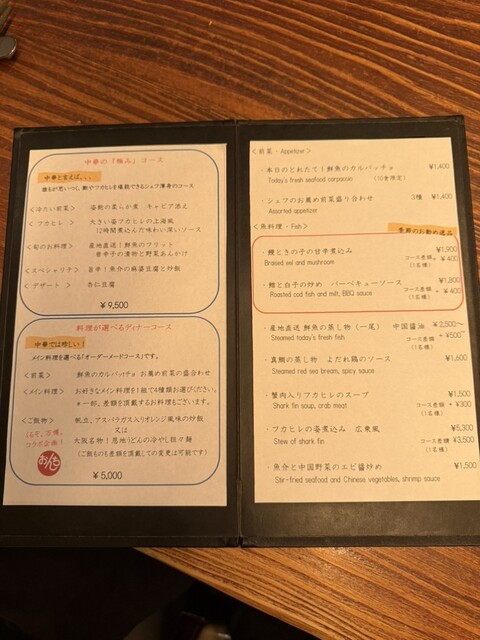 中華の「極み」コース
中華と言えば、、、
誰もが思いつく、鮑やフカヒレを堪能できるシェフ渾身のコース
<冷たい前菜> 姿鮑の柔らか煮 キャビア添え
<フカヒレ> 大きい姿フカヒレの上海風
12時間煮込んだ味わい深いソース
<旬のお料理> 産地直送！鮮魚のフリット
青辛子の漬物と野菜あんかけ
<スペシャリテ> 旨辛！魚介の麻婆豆腐と炒飯
<デザート> 杏仁豆腐
¥9,500
料理が選べるディナーコース
中華では珍しい！
メイン料理を選べる！「オーダーメードコース」です。
<前菜> 鮮魚のカルパッチョ お薦め前菜の盛合わせ
<メイン料理> お好きなメイン料理を1組で4種類お選びください。
*一部、差額を頂戴するお料理もございます。
<ご飯物> 帆立、アスパラガス入りオレンジ風味の炒飯
又は
大阪名物！恩地うどんの冷やし担々麺
(ご飯ものも差額を頂戴しての変更は可能です)
コラボ企画！
おんち
¥5,000
<前菜・Appetizer>
・本日のとれたて！鮮魚のカルパッチョ ¥1,400
Today's fresh seafood carpaccio (10食限定)
・シェフのお薦め前菜盛り合わせ 3種 ¥1,400
Assorted appetizer
<魚料理・Fish>
季節のお勧め逸品
・鰻ときの子の甘辛煮込み ¥1,900
Braised eel and mushroom コース差額 + ¥400
(1名様)
・鱈と白子の炒め バーベキューソース ¥1,800
Roasted cod fish and milt, BBQ sauce コース差額 + ¥400
(1名様)
・産地直送 鮮魚の蒸し物（一尾） 中国醤油 ¥2,500~
Steamed today's fresh fish コース差額 ¥500~
(1名様)
・真鯛の蒸し物 よだれ鶏のソース ¥1,600
Steamed red sea bream, spicy sauce
・蟹肉入りフカヒレのスープ ¥1,500
Shark fin soup, crab meat コース差額 + ¥300
(1名様)
・フカヒレの姿煮込み 広東風 ¥5,300
Stew of shark fin コース差額 ¥3,500
(1名様)
・魚介と中国野菜のエビ醤炒め ¥1,500
Stir-fried seafood and Chinese vegetables, shrimp sauce